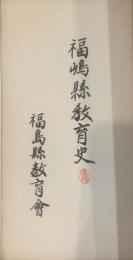 福嶋縣教育史
福島縣教育會